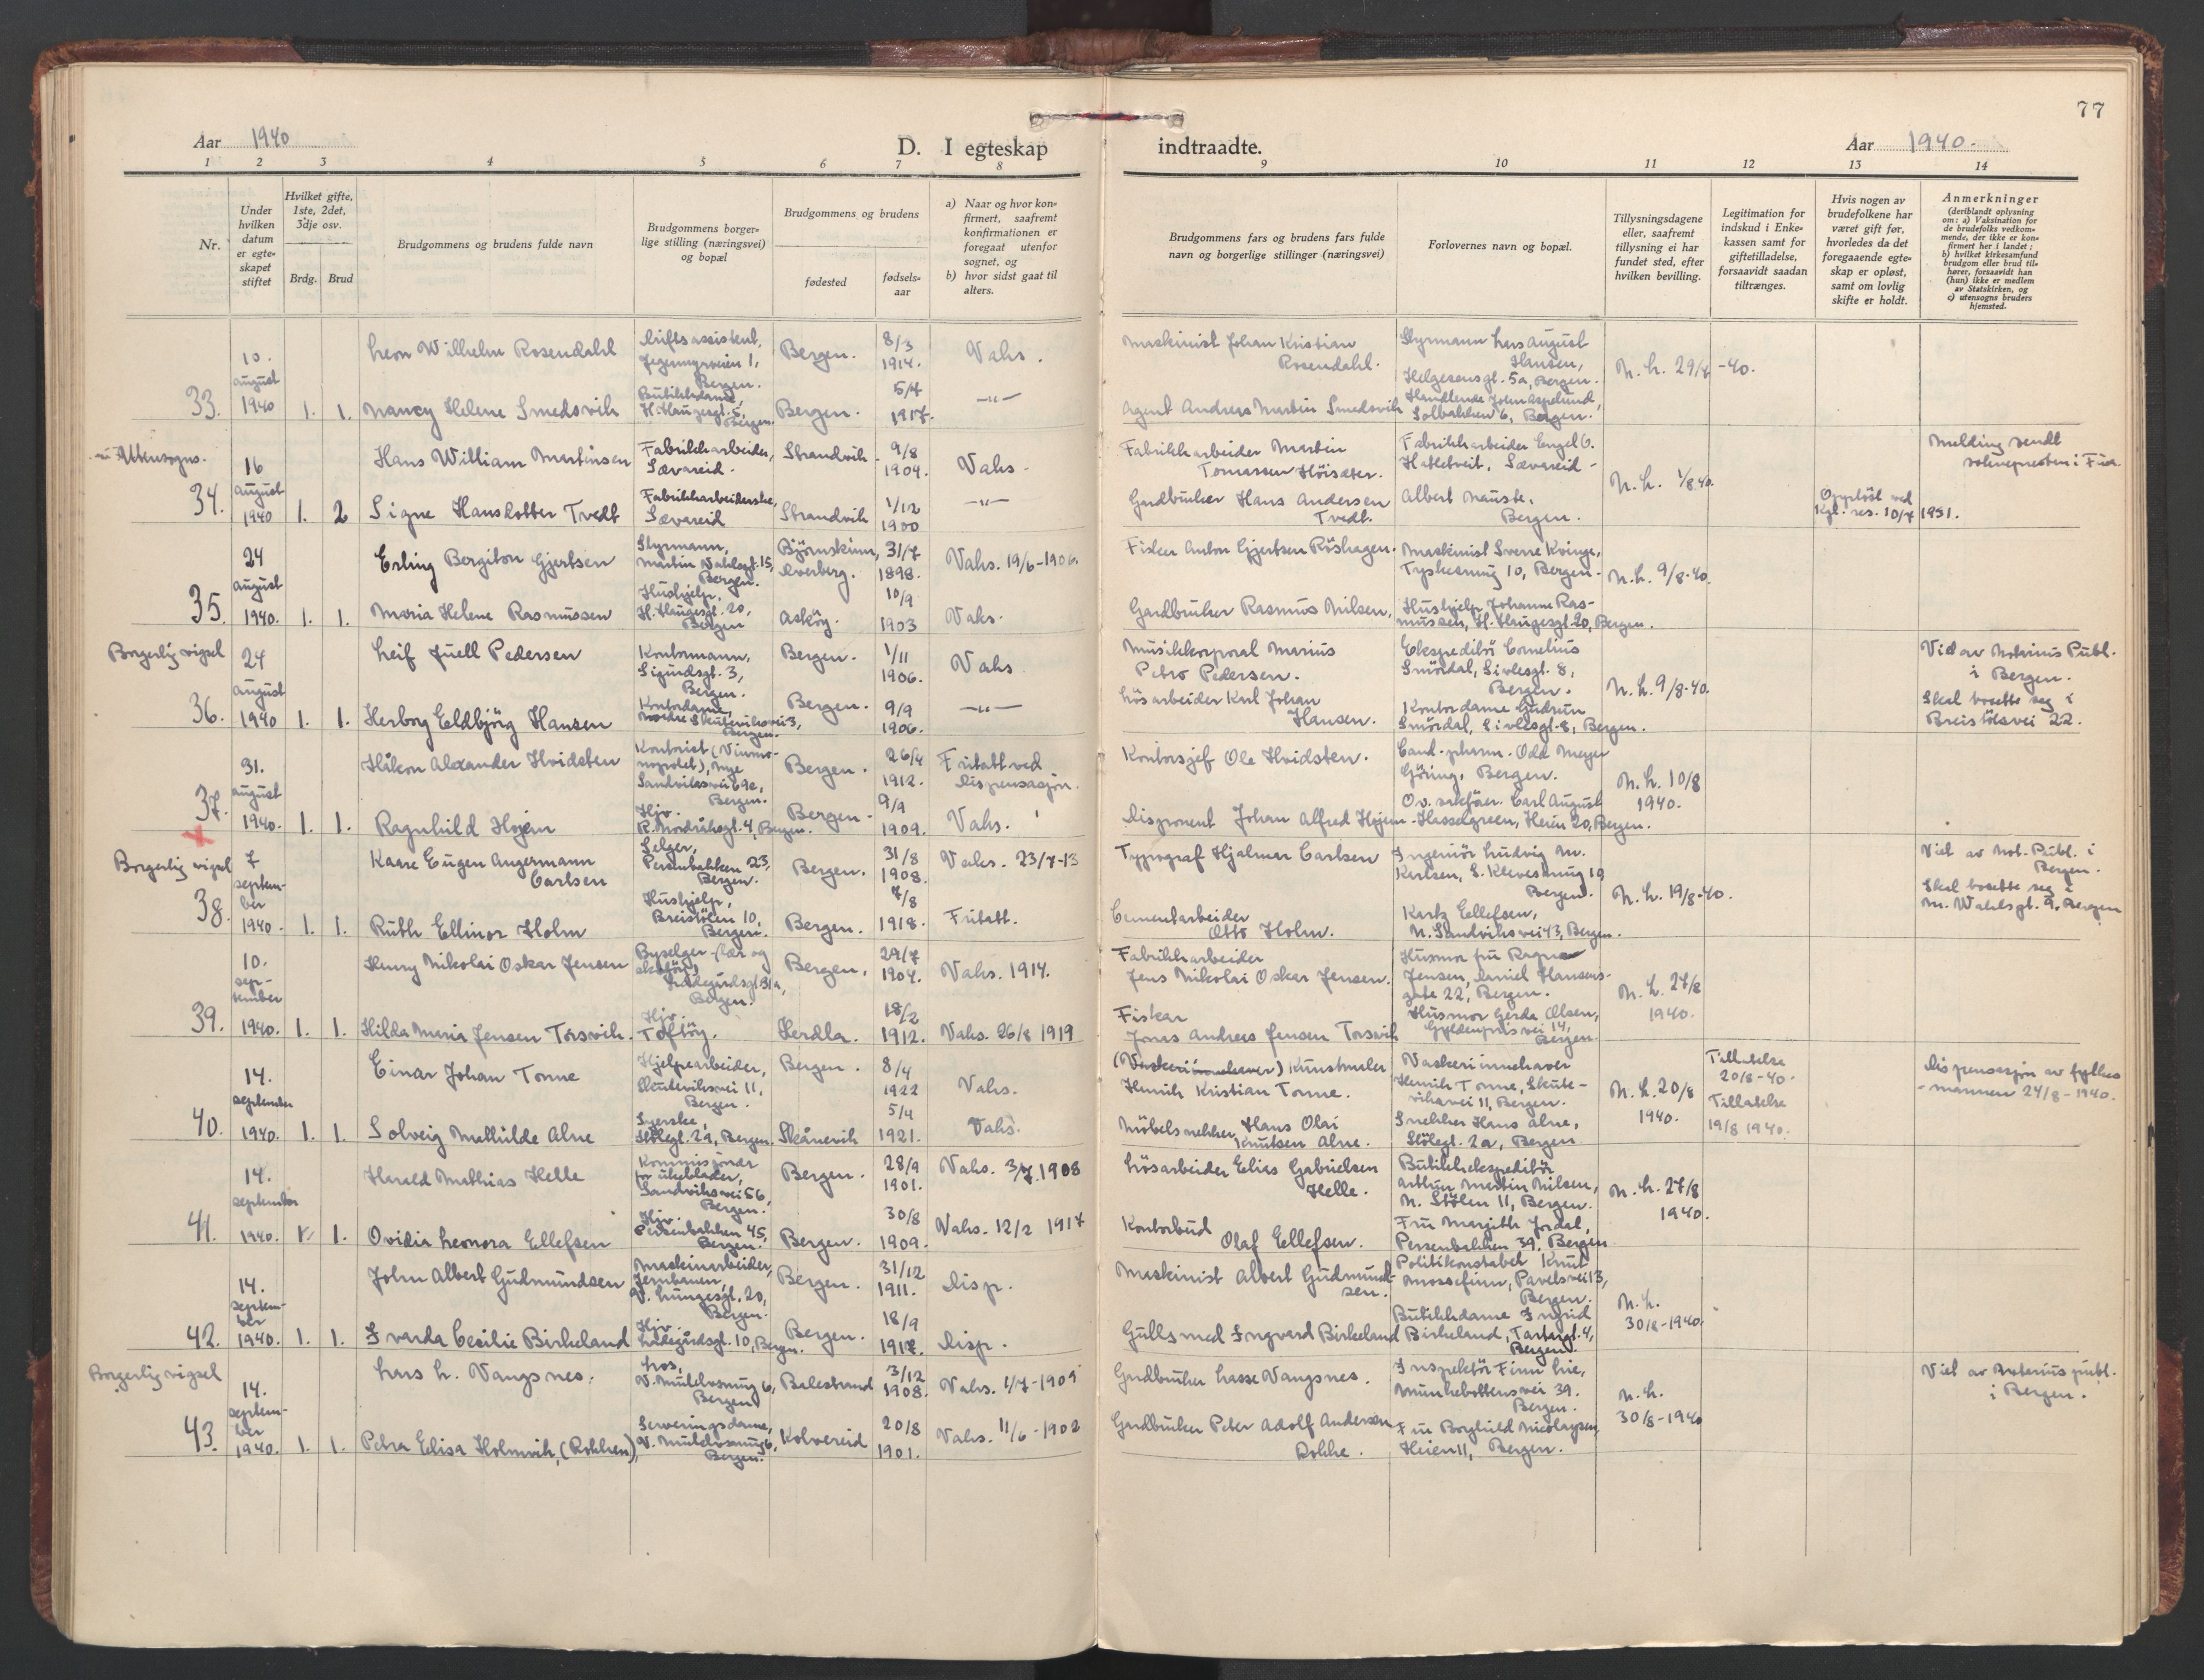 77
Aar 1940
D. I egteskap
indtraadte.
Aar 1940.
1 2 3 4 5 6 7 8
9 10 11 12 13 14
Nr.
Under hvilken datum er egteskapet stiftet
Hvilket gifte, 1ste, 2det, 3dje osv.
Brdg. Brud
Brudgommens og brudens fulde navn
Brudgommens borgerlige stilling (næringsvei) og bopæl
Brudgommens og brudens
fødested
fødselsaar
a) Naar og hvor konfirmert, saafremt konfirmationen er foregaat utenfor sognet, og
b) hvor sidst gaat til alters.
Brudgommens fars og brudens fars fulde navn og borgerlige stillinger (næringsvei)
Forlovernes navn og bopæl.
Tillysningsdagene eller, saafremt tillysning ei har fundet sted, efter hvilken bevilling.
Legitimation for indskud i Enkekassen samt for giftetilladelse, forsaavidt saadan tiltrænges.
Hvis nogen av brudefolkene har været gift før, hvorledes da det foregaaende egteskap er opløst, samt om lovlig skifte er holdt.
Anmerkninger
(deriblandt oplysning om: a) Vaksination for de brudefolks vedkommende, der ikke er konfirmert her i landet; b) hvilket kirkesamfund brudgom eller brud tilhører, forsaavidt han (hun) ikke er medlem av Statskirken, og c) utensogns bruders hjemsted.
33. 10. august 1940 1. 1.
Leon Wilhelm Rosendahl
Driftsassistent, Jegermyrveien 1, Bergen.
Bergen. 8/3 1914. Vaks.
Maskinist Johan Kristian Rosendahl.
Styrmann Lars August Hansen, Helgesensgt. 5a, Bergen.
N.L. 29/7 -40.
Nancy Helene Smedsvik
Butikkdame, H. Haugesgt. 5, Bergen.
Bergen. 5/7 1917. —"—
Agent Andreas Martin Smedsvik
Handlende John Aspelund, Solbakken 6, Bergen.
Utensogns.
34. 16 august 1940 1. 2
Hans William Martinsen
Fabrikkarbeider, Sævareid.
Strandvik. 9/8 1904. Vaks.
Fabrikkarbeider Martin Tomassen Høisæter.
Fabrikkarbeider Engel O. Hatletveit, Sævareid.
N.L. 1/8 40.
Melding sendt soknepresten i Fusa
Signe Hansdotter Tvedt
Fabrikkarbeiderske, Sævareid
Strandvik 1/12 1900 —"—
Gardbruker Hans Andersen Tvedt.
Albert Nauste, Bergen.
Oppløst ved Kgl. res. 10/7 1931.
35. 24 august 1940. 1. 1.
Erling Bergiton Gjertsen
Styrmann, Martin Vahlsgt. 15, Bergen.
Bjørnskinn, Dverberg. 31/7 1898. Vaks. 19/6-1906.
Fisker Anton Gjertsen Röshagen.
Maskinist Sverre Kvinge, Tyskesmug 10, Bergen.
N.L. 9/8-40.
Maria Helene Rasmussen
Hushjelp, H. Haugesgt. 20, Bergen
Askøy. 10/9 1903 Vaks.
Gardbruker Rasmus Nilsen,
Hushjelp Johanne Rasmussen, H. Haugesgt. 20, Bergen.
Borgerlig vigsel
36. 24 august 1940 1. 1.
Leif Juell Pedersen
Kontormann, Sigurdsgt. 3, Bergen.
Bergen. 1/11 1906. Vaks
Musikkorporal Marius Petro Pedersen.
Ekspeditör Cornelius Smördal, Sivlesgt. 8, Bergen.
N.L. 9/8-40.
Viet av Notarius Publ. i Bergen.
Herborg Eldbjörg Hansen
Kontordame, Nordre Skuteviksvei 3, Bergen.
Bergen. 9/9 1906. —"—
Løsarbeider Karl Johan Hansen.
Kontordame Gudrun Smördal, Sivlesgt. 8, Bergen.
Skal bosette seg i Breistölsvei 22.
37. 31. august 1940. 1. 1.
Håkon Alexander Hvidsten
Kontorist (Vinmonopolet), Nye Sandviksvei 69e, Bergen.
Bergen. 26/4 1912. Fritatt ved dispensasjon.
Kontorsjef Ole Hvidsten.
Cand. pharm. Odd Meyer Göring, Bergen.
N.L. 10/8 1940.
Ragnhild Hojem
Hjv. R. Nordråksgt. 4, Bergen.
Bergen. 9/9 1909. Vaks.
Disponent Johan Alfred Hojem.
Carl August Hasselgreen, Heien 20, Bergen.
Borgerlig vigsel
38. 7 september 1940. 1. 1.
Kaare Eugen Angermann Carlsen
Selger, Persenbakken 23, Bergen.
Bergen. 31/8 1908. Vaks. 23/7-13
Typograf Hjalmar Carlsen
Ingeniør Ludvig M. Karlsen, S. Klevesmug 19 Bergen.
N.L. 19/8-40.
Viet av Not. Publ. i Bergen.
Ruth Ellinor Holm
Hushjelp, Breistölen 10, Bergen.
Bergen. 7/8 1918. Fritatt.
Cementarbeider Otto Holm.
Kartz Ellefsen, N. Sandviksvei 43, Bergen.
Skal bosette seg i M. Wahlsgt. 9, Bergen
39. 10. september 1940. 1. 1.
Henry Nikolai Oskar Jensen
Byselger-lær og skotøy, Ladegårdsgt. 31a, Bergen.
Bergen. 29/7 1904. Vaks. 1914.
Fabrikkarbeider Jens Nikolai Oskar Jensen.
Husmor fru Ragna Jensen, Daniel Hansensgate 22, Bergen.
N.L. 27/8 1940.
Hilda Maria Jensen Torsvik.
Hjv. Toftöy.
Herdla. 18/2 1912. Vaks. 26/8 1919
Fiskar Jonas Andreas Jensen Torsvik
Husmor Gerda Olsen, Gyldenprisvei 14, Bergen
40. 14. september 1940. 1. 1.
Einar Johan Tonne
Hjelpearbeider, Skuteviksvei 11, Bergen.
Bergen. 8/4 1922 Vaks.
(Vaskeriinnehaver) Kunstmaler Henrik Kristian Tonne.
Vaskeriinnehaver Henrik Tonne, Skuteviksvei 11, Bergen.
N.L. 20/8 1940.
Tillatelse 20/8-40.
Tillatelse 19/8 1940.
Dispensasjon av fylkesmannen 24/8-1940.
Solveig Mathilde Alne
Syerske, Stölegt. 2a, Bergen.
Skånevik 5/4 1921. Vaks.
Møbelsnekker Hans Olai Knutsen Alne.
Snekker Hans Alne, Stölegt. 2a, Bergen
41. 14. september 1940. 1. 1.
Harald Mathias Helle
Kommisjonær for ukeblader, Sandviksvei 56, Bergen.
Bergen. 28/9 1901. Vaks. 3/7.1908
Løsarbeider Elias Gabrielsen Helle.
Butikkekspeditör Arthur Martin Nilsen, N. Stölen 11, Bergen.
N.L. 27/8 1940.
Ovidia Leonora Ellefsen
Hjv. Persenbakken 45, Bergen.
Bergen. 30/8 1909. Vaks. 12/2 1917
Kontorbud Olaf Ellefsen.
Fru Margith Jordal, Persenbakken 39, Bergen
42. 14. september 1940. 1. 1.
John Albert Gudmundsen
Maskinarbeider, Jernbanen, V. Lungesgt. 20, Bergen.
Bergen. 31/12 1911. Disp.
Maskinist Albert Gudmundsen.
Politikonstabel Knut Mossefinn, Pavelsvei 13, Bergen.
N.L. 30/8-1940.
Ivarda Cecilie Birkeland
Hjv. Ladegårdsgt. 10, Bergen.
Bergen. 18/9 1917. Disp.
Gullsmed Ingvard Birkeland
Butikkdame Ingrid Birkeland, Tartargt. 4, Bergen.
Borgerlig vigsel
43. 14. september 1940. 1. 1.
Lars L. Vangsnes.
Los, V. Muhlesmug 6, Bergen
Balestrand 3/12 1908. Vaks. 1/7-1909
Gardbruker Lasse Vangsnes.
Inspektör Finn Lie, Munkebottsvei 39. Bergen.
N.L. 30/8-1940
Viet av Notarius publ. i Bergen.
Petra Elisa Holmvik, (Rokken),
Serveringsdame, Bergen.
Kolvereid 20/8 1901. Vaks. 11/6-1902
Gardbruker Peter Adolf Andersen
Fru Borghild Nicolaysen, Heien 11, Bergen.